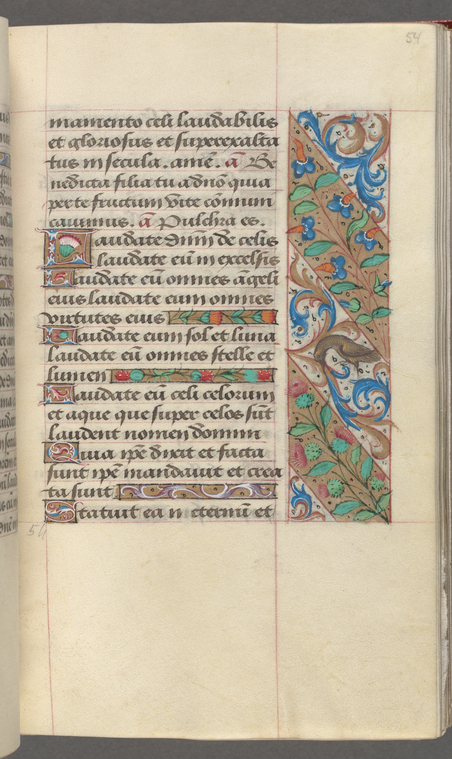 54
mamento celi laudabilis
et gloriosus et superexalta
tus in secula. amē. ā Be
nedicta filia tu a dn̄o quia
per te fructum vite cōmuni
cauimus. ā Pulchra es.
Laudate dn̄m de celis
laudate eū in excelsis
Laudate eū omnes āgeli
eius laudate eum omnes
virtutes eius
Laudate eum sol et luna
laudate eū omnes stelle et
lumen
Laudate eū celi celorum
et aque que super celos sūt
laudent nomen domini
Quia ip̄e dixit et facta
sunt ip̄e mandauit et crea
ta sunt
Statuit ea in eternū et
54